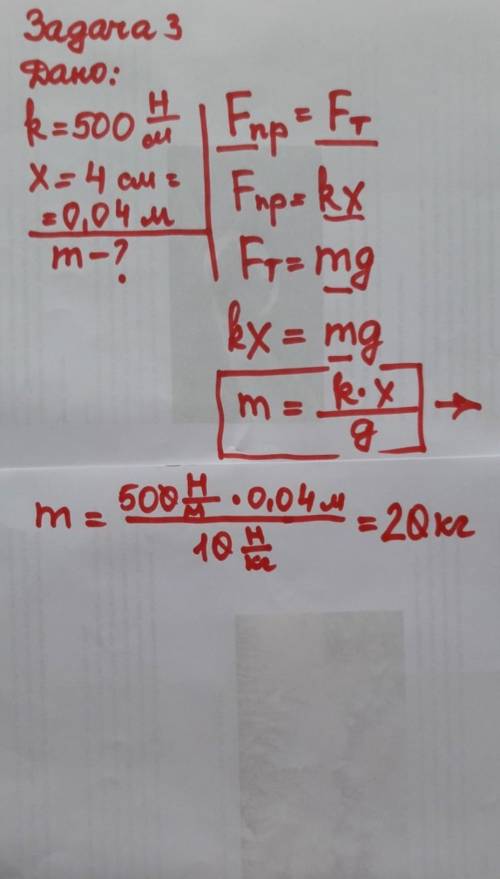 Задача 3
Дано:
k = 500 Н/м
x = 4 см =
= 0,04 м
m - ?
Fпр = Fт
Fпр = kx
Fт = mg
kx = mg
m = k·x/g →
m = 500 Н/м · 0,04 м / 10 Н/кг = 20 кг